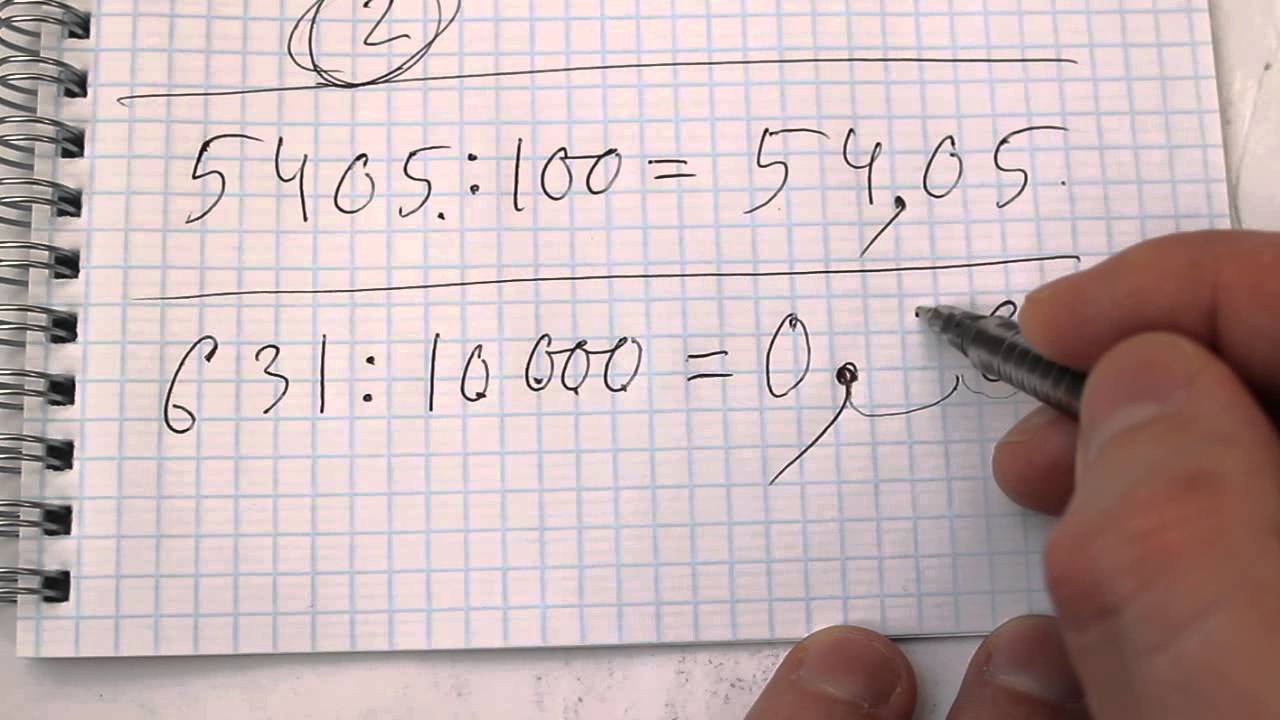 2
5405:100=54,05
631:10000=0,